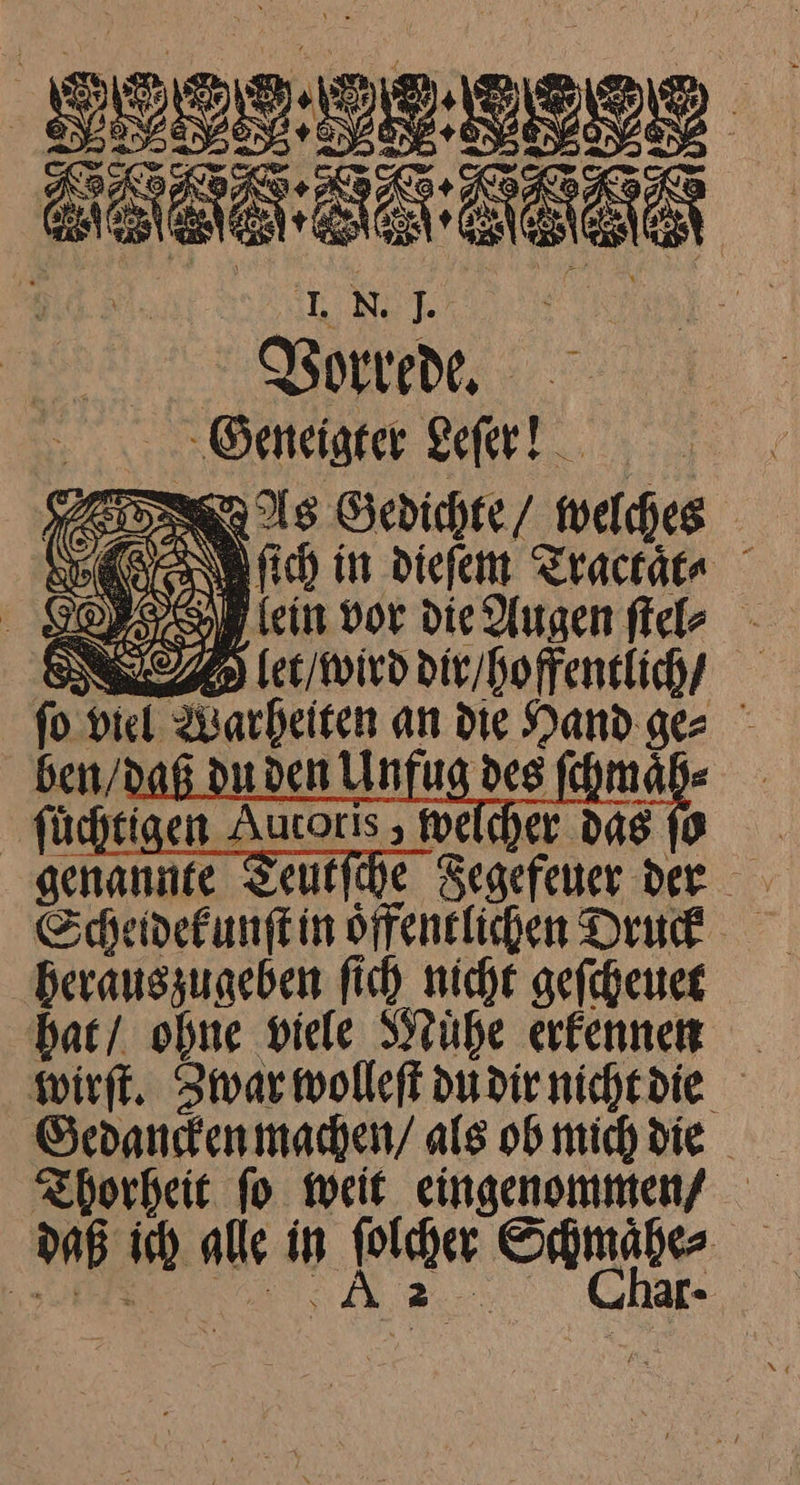 I. N. J.
Vorrede.
Geneigter Leſer!
DAs Gedichte/ welches
ſich in dieſem Tractaͤt⸗
lein vor die Augen ſtel⸗
let/wird dir/hoffentlich/
ſo viel Warheiten an die Hand ge⸗
ben/daß du den Unfug des ſchmaͤh⸗
ſuͤchtigen Autoris, welcher das ſo
genannte Teutſche Fegefeuer der
Scheidekunſt in oͤffentlichen Druck
herauszugeben ſich nicht geſcheuet
hat/ ohne viele Muͤhe erkennen
wirſt. Zwar wolleſt du dir nicht die
Gedancken machen/ als ob mich die
Thorheit ſo weit eingenommen/
daß ich alle in ſolcher Schmaͤhe⸗
A 2 Char-